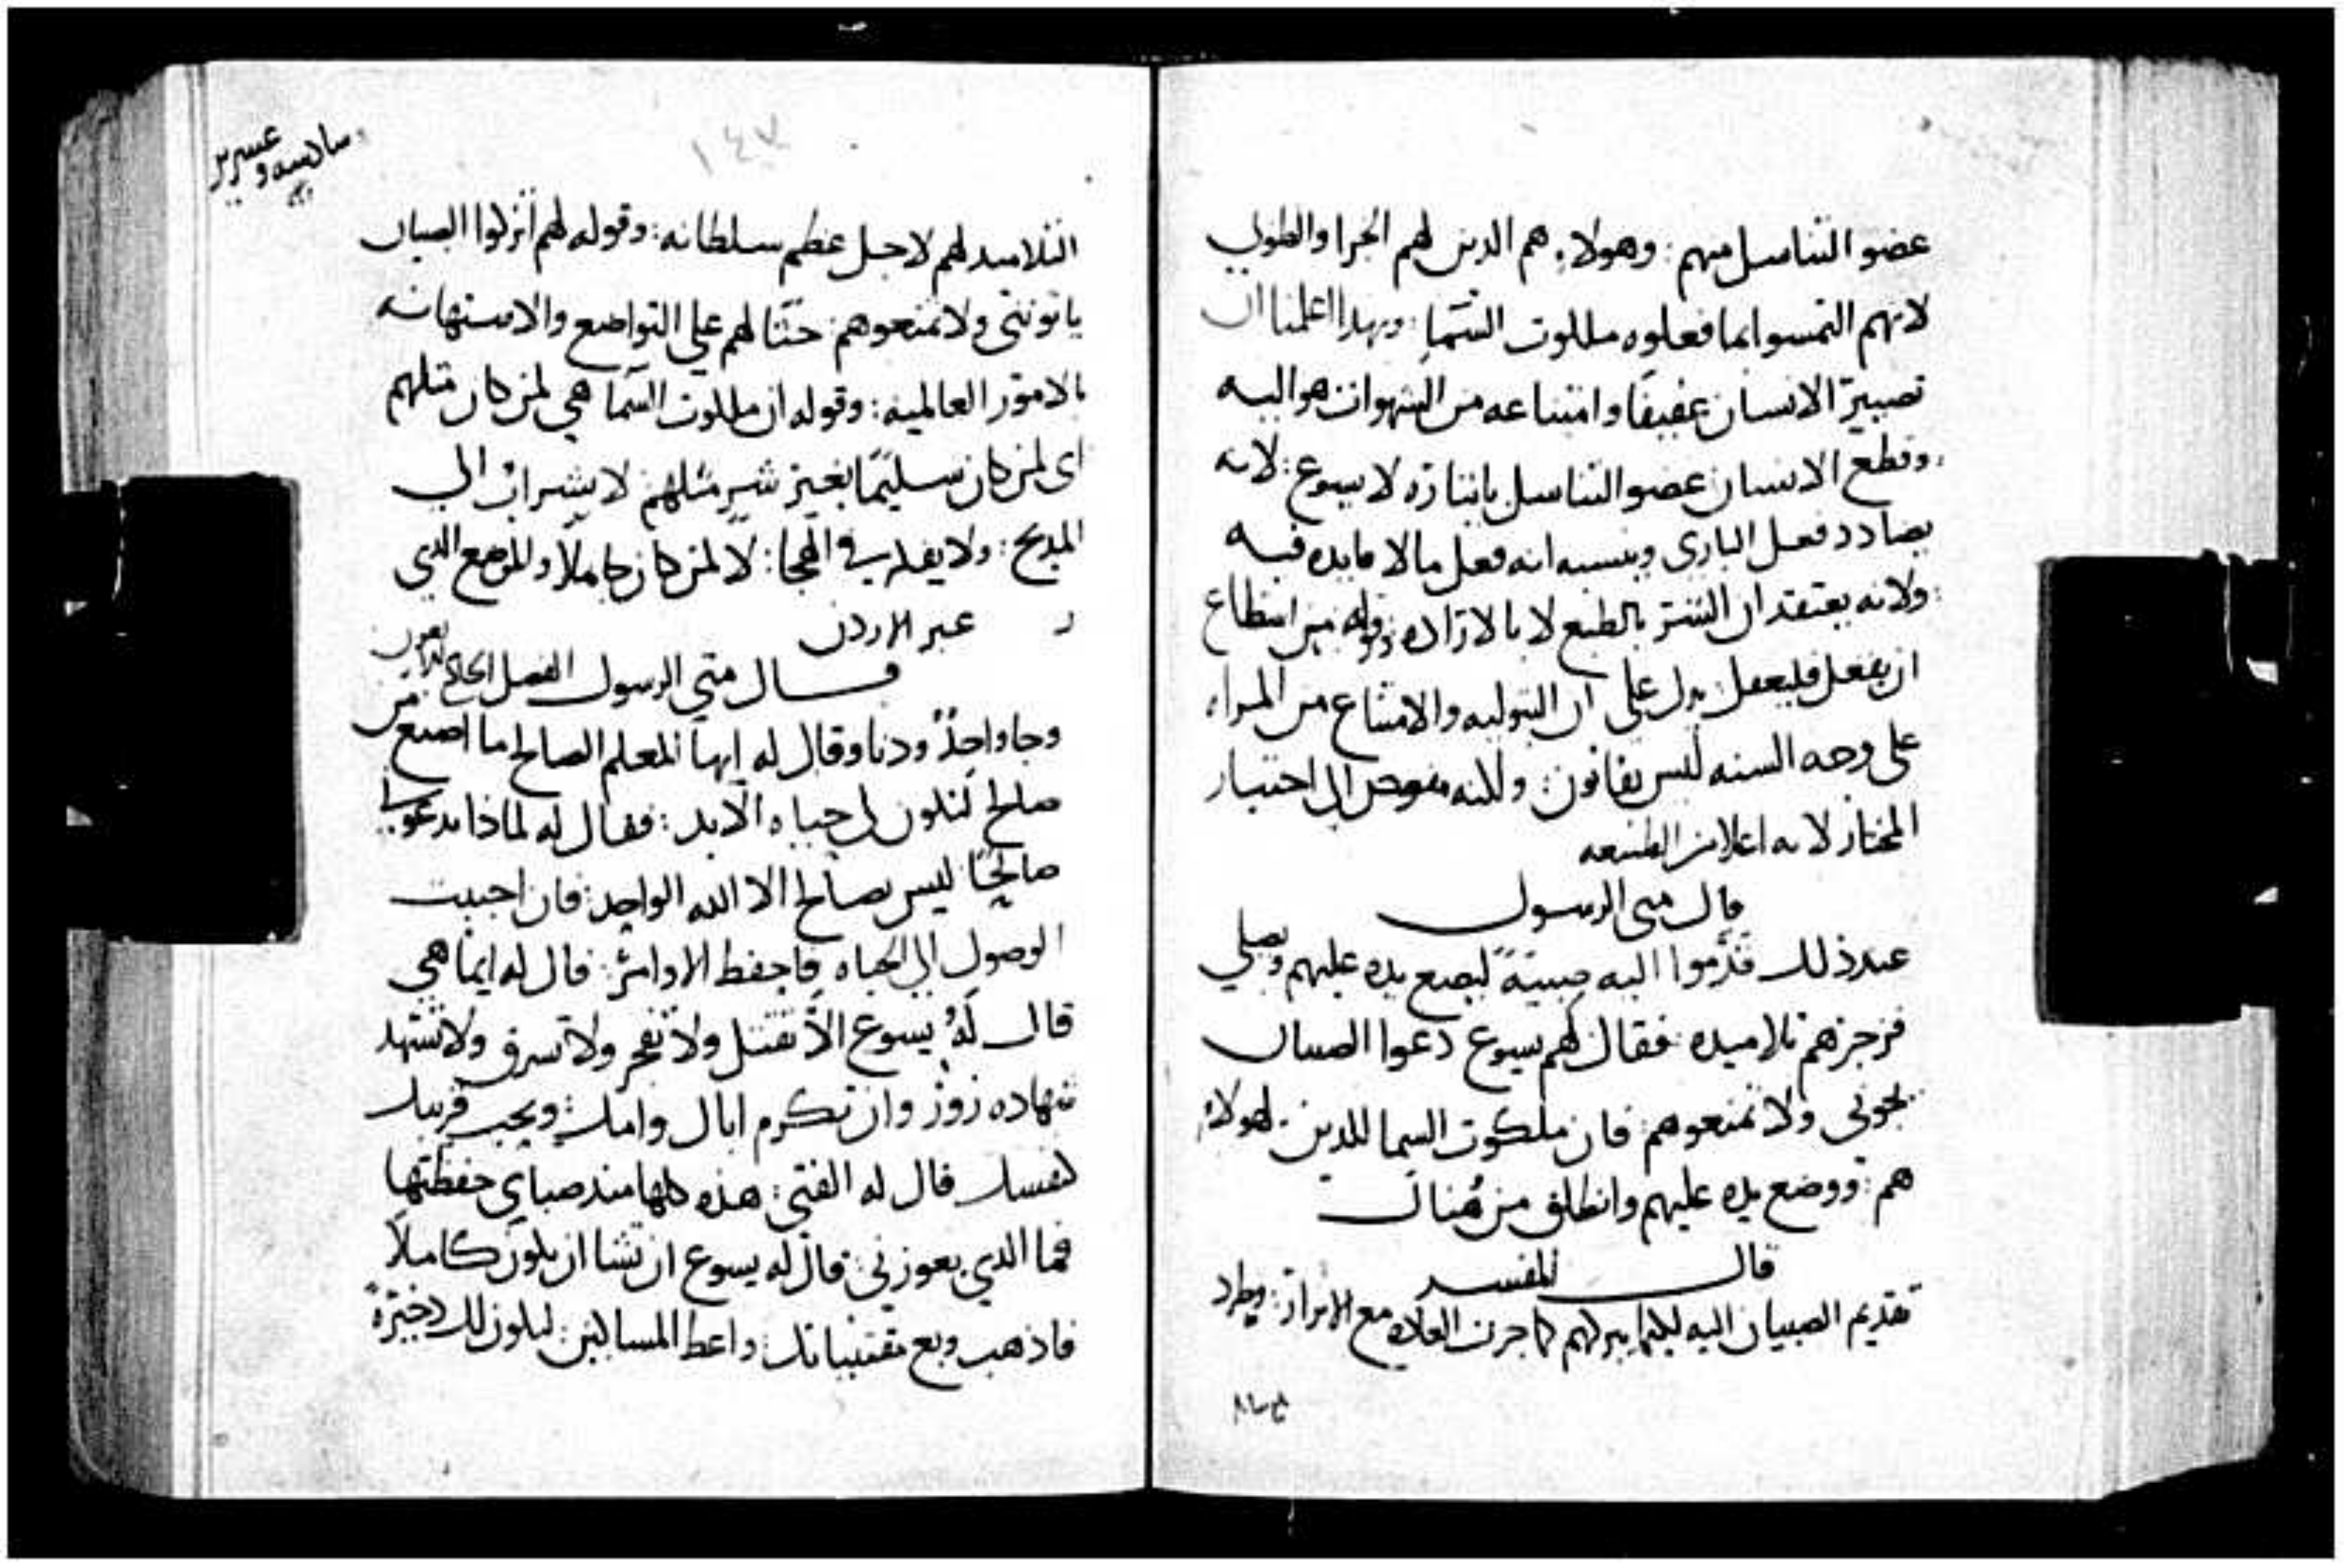 عضو التناسل منهم : وهولاء هم الدين لهم الجزا والطوبي
لانهم التمسوا بما فعلوه ملكوت السَما : وبهدا اعلمنا ان
تصيير الانسان عفيفًا وامتناعه من الشهوات هو اليه
وقطع الانسان عضو التناسل باتياره لا يسوع : لانه
يضادد فعل الباري وينسبه انه فعل ما لا فايده فيه
ولانه يعتقد ان الشر بالطبع لا بالاراده وقوله من استطاع
ان يفعل فليفعل يدل على ان البتوليه والامتناع من المراه
على وجه السنه ليس بقانون : ولكنه مفوض الى اختيار
المختار لانه اعلا من الطبيعه
قال متى الرسول
عند ذلك قدَّموا اليه صبيةً ليضع يده عليهم ويصلي
فزجرهم تلاميده : فقال لهم يسوع دعوا الصبيان
يجوني ولا تمنعوهم : فان ملكوت السما للدين لهولاء
هم : ووضع يده عليهم وانطلق من هُناك
قال المفسر
تقديم الصبيان اليه ليكيما يبركهم كما جرت العاده مع الابرار : وطرد
١٤٧
سادسه وعشرين
التلاميد لهم لاجل عظم سلطانه : وقوله لهم اتركوا الصبيان
ياتونني ولا تمنعوهم : حثًا لهم علي التواضع والاستهانه
بالامور العالميه : وقوله ان ملكوت السما هي لمن كان مثلهم
اى لمن كان سليمًا بغير شرٍ مثلهم لا يشراب الى
المديح : ولا يفكر في الهجا : لا لمن كان كاملًا والموضع الدي
عبر الاردن
قال متي الرسول الفصل
وجا واحدٌ ودنا وقال له ايها المعلم الصالح ما اصنع من
صالح لتكون لي حياه الابد : فقال له لماذا تدعوني
صالحًا ليس صالح الا الله الواحد : فان احببت
الوصول الى الحياه فاحفظ الاوامر : قال له ايما هي
قال لهُ يسوع الّا تقتل ولا تفجر ولا تسرق ولا تشهد
شهاده زور وان تكرم اباك وامك : وتحب قريبك
كنفسك قال له الفتي : هذه كلها مند صباي حفظتها
فما الدي يعوزني : قال له يسوع ان تشا ان تكون كاملًا
فاذهب وبع مقتنياتك : واعط المساكين : ليكون لك دخيرةً